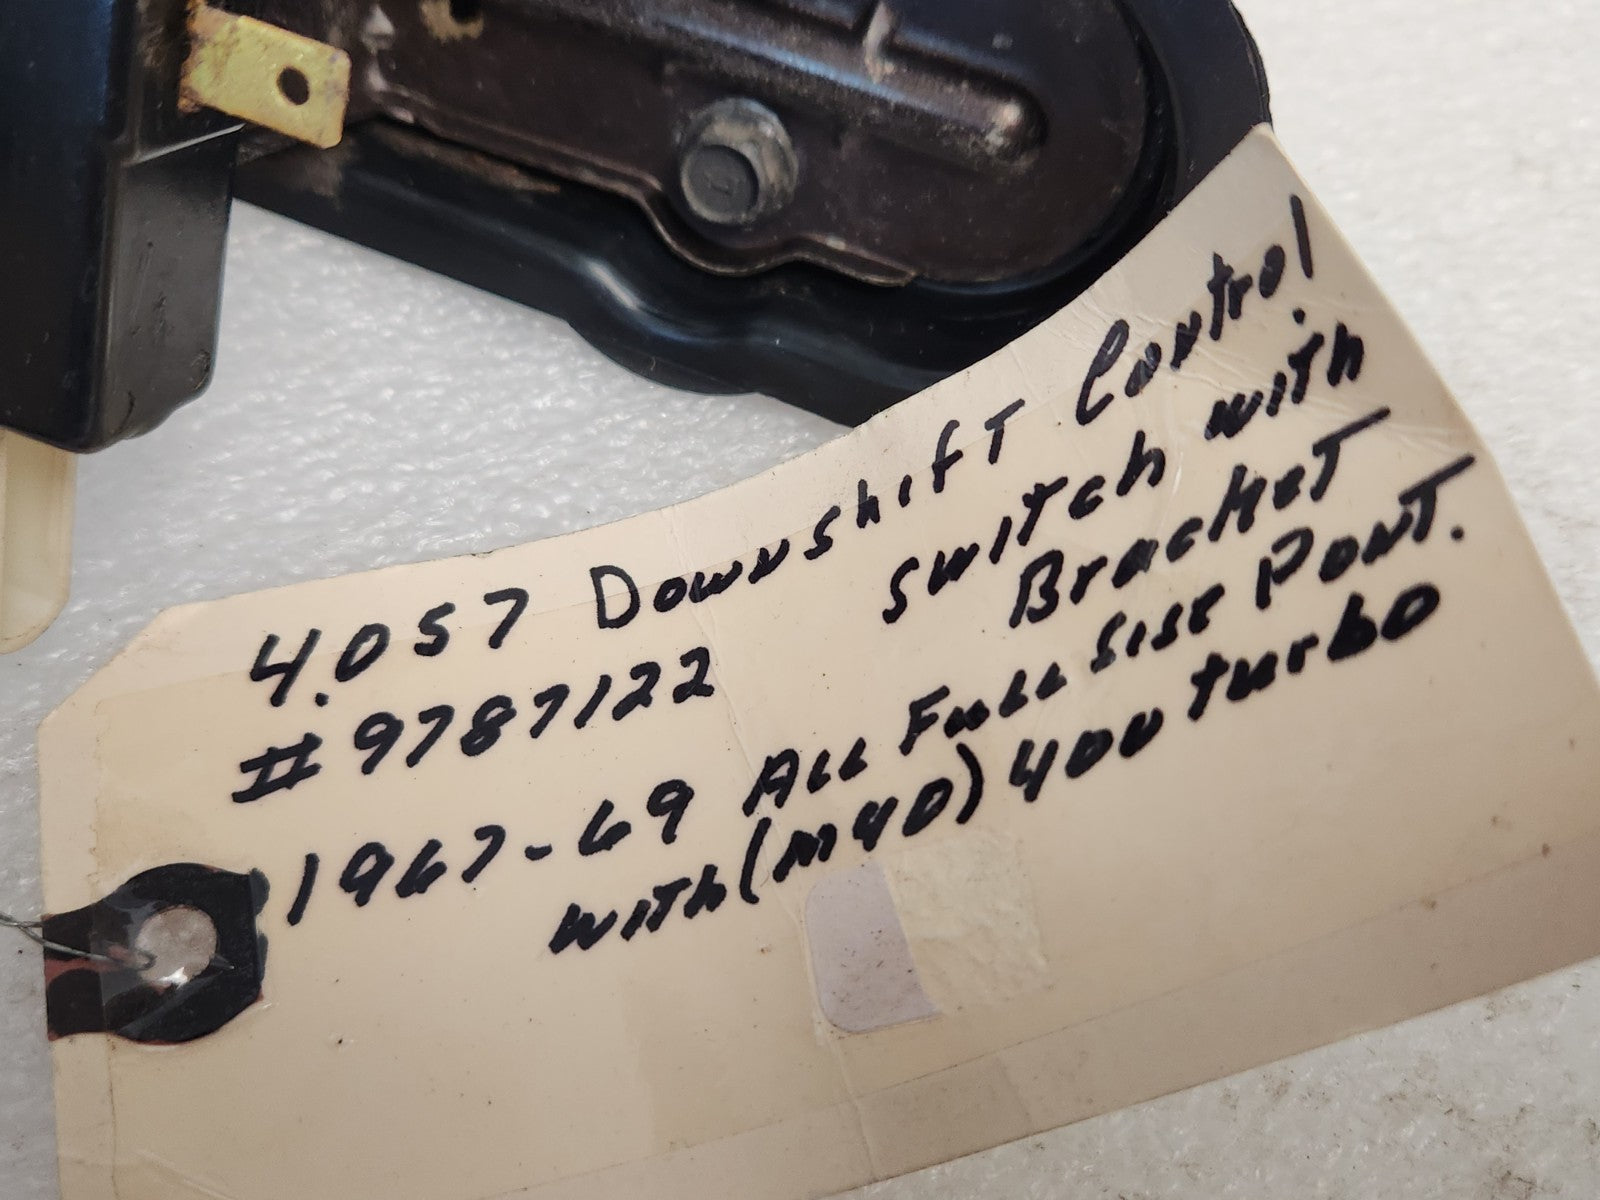 4.057 Downshift Control
switch with
Bracket
#9787122
1967-69 All Full Sise Pont.
with (M40) 400 turbo